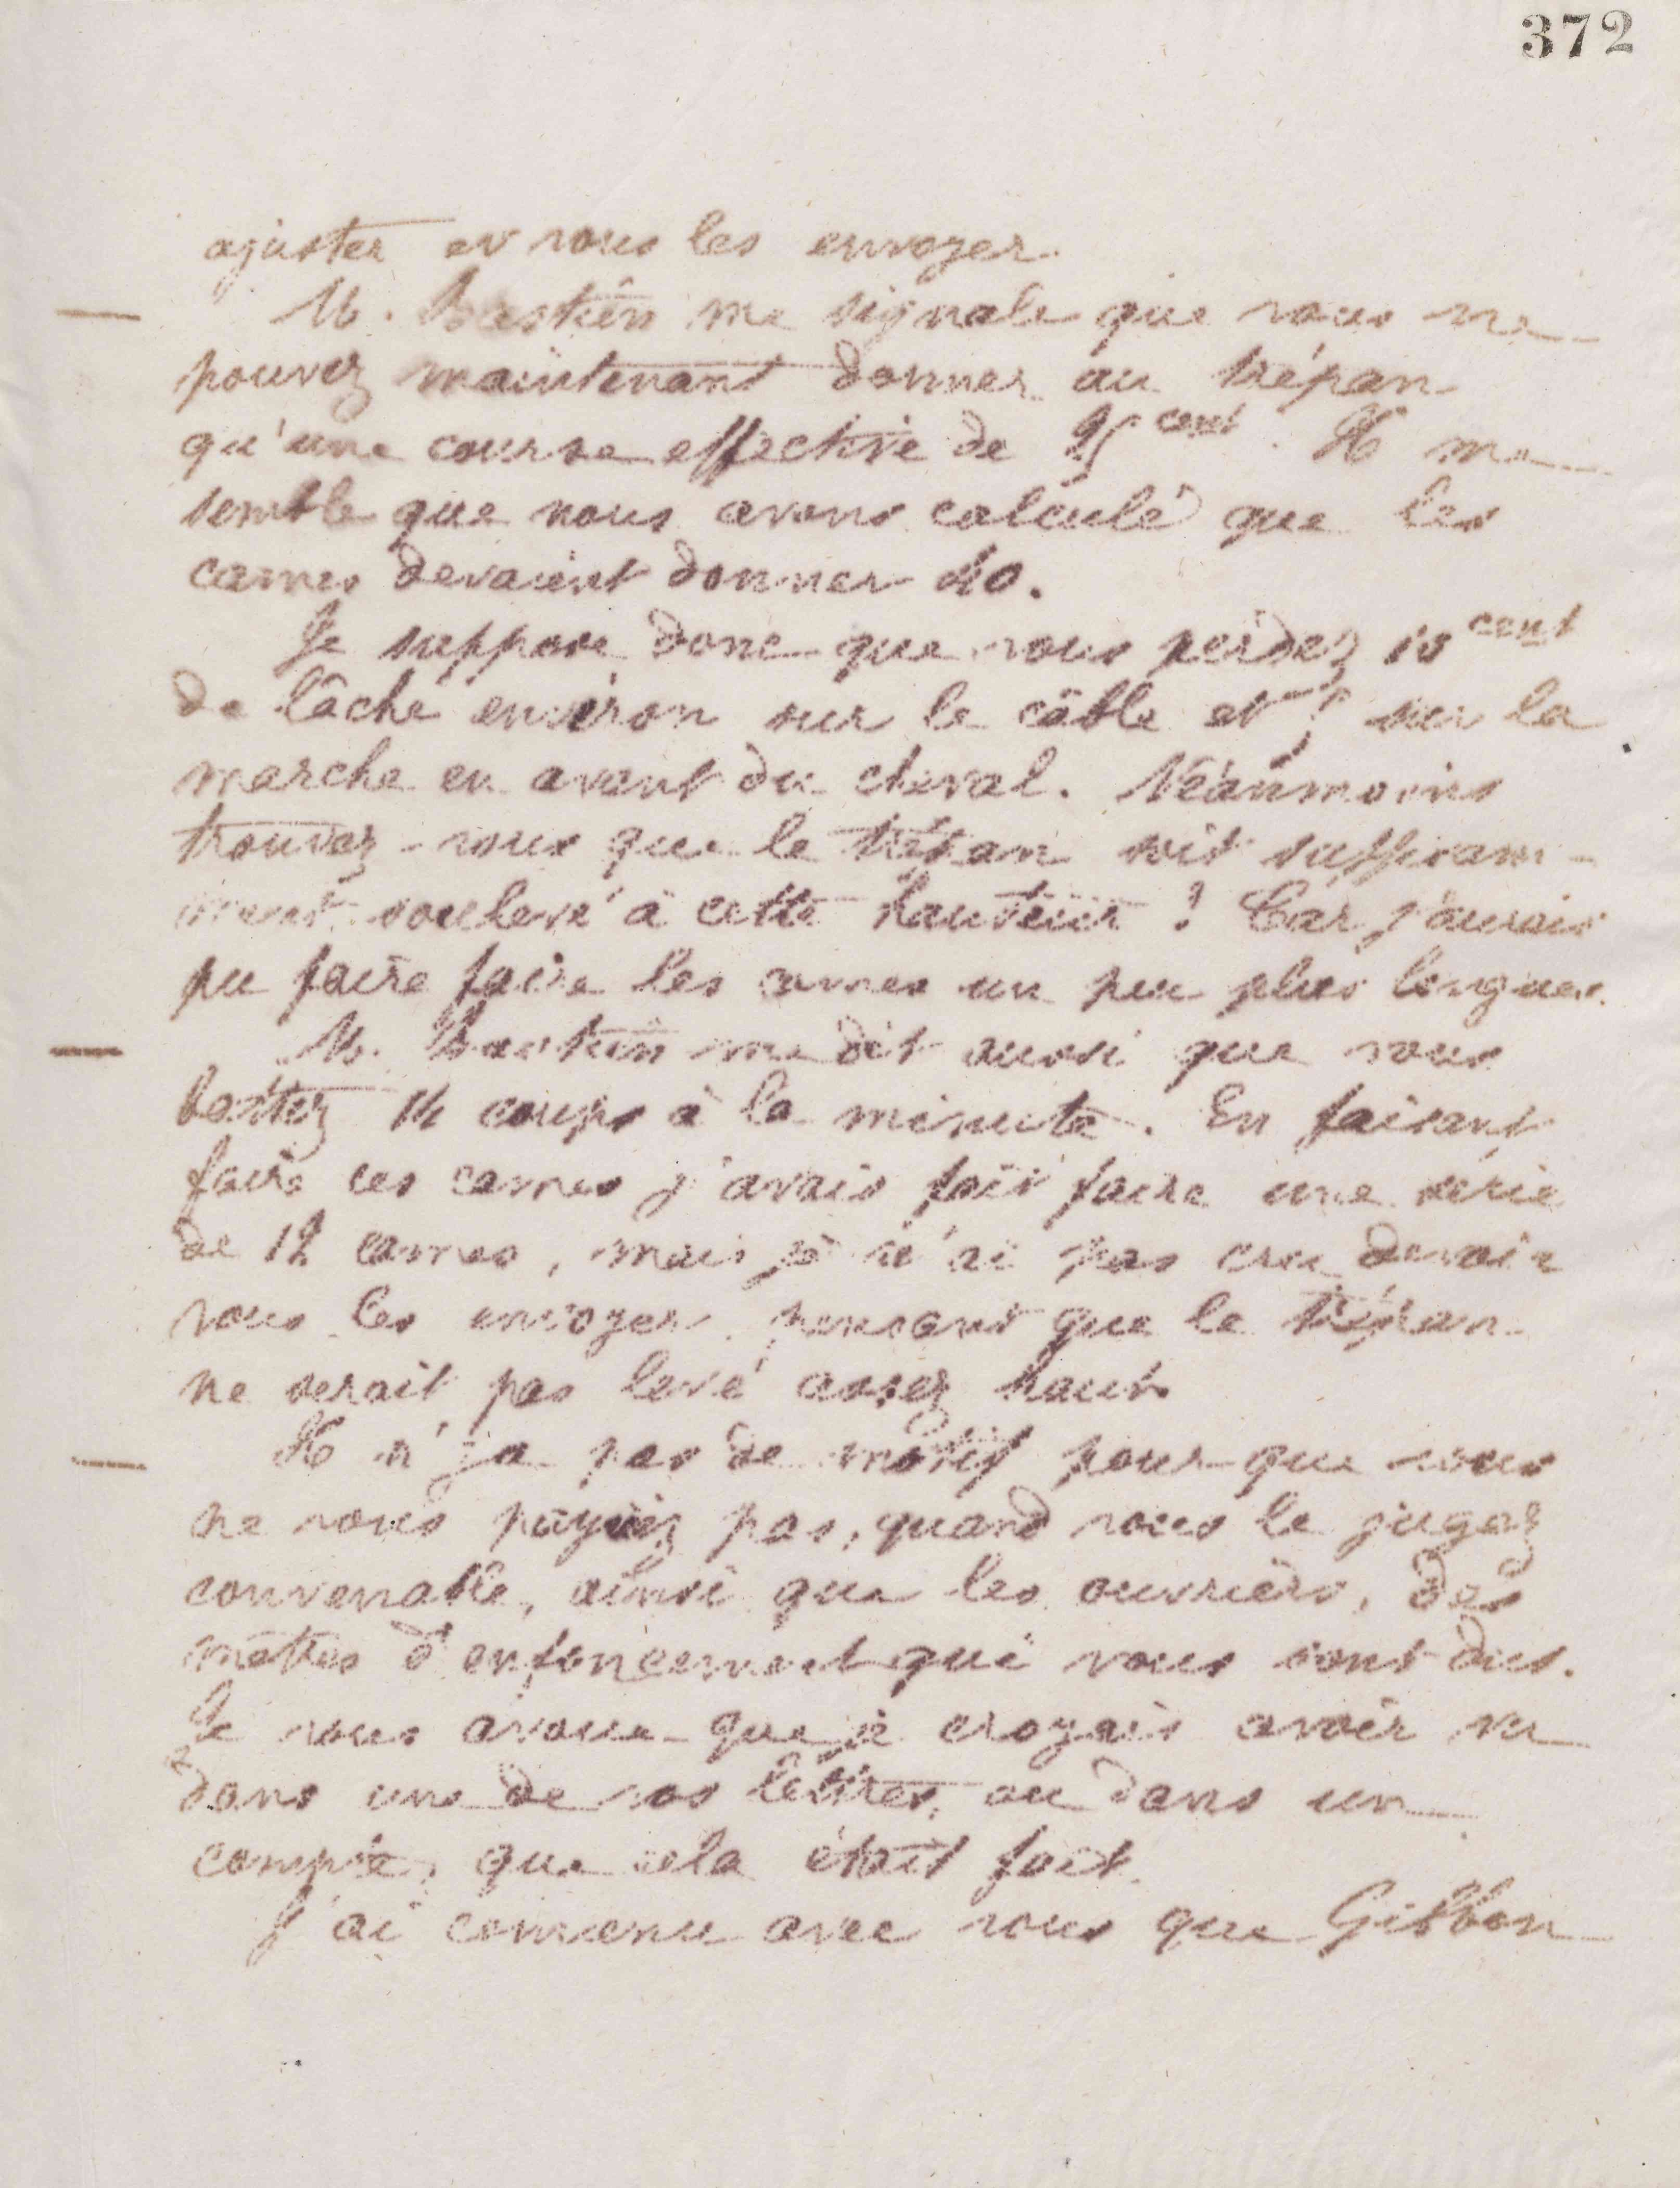 372
ajuster et vous les envoyer.
M. Bastien me signale que vous ne
pouvez maintenant donner au trépan
qu'une course effective de 25 cent. Il me
semble que nous avons calculé que les
cames devaient donner 40.
Je suppose donc que vous perdez 10 cent
de lâche environ sur le câble et 5 sur la
marche en avant du cheval. Néanmoins
trouvez-vous que le trépan soit suffisam-
ment soulevé à cette hauteur ? Car j'aurais
pu faire faire les cames un peu plus longues.
M. Bastien me dit aussi que vous
battez 14 coups à la minute. En faisant
faire ces cames j'avais fait faire une série
de 12 cames, mais je n'ai pas cru devoir
vous les envoyer, pensant que le trépan
ne serait pas levé assez haut.
Il n'y a pas de motif pour que vous
ne vous payiez pas, quand vous le jugez
convenable, ainsi que les ouvriers, des
mètres d'enfoncement qui vous sont dus.
Je vous avoue que je croyais avoir vu
dans une de vos lettres, ou dans un
compte, que cela était fait.
J'ai convenu avec vous que Gibbon